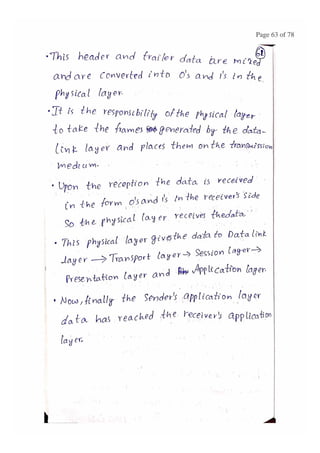 Page 63 of 78
61
• This header and trailer data are mixed
and are converted into 0's and 1's in the
physical layer.
• It is the responsibility of the physical layer
to take the frames generated by the data-
link layer and places them on the transmission
medium.
• Upon the reception the data is received
in the form 0's and 1's in the receiver's side
So the physical layer receives the data.
• This physical layer gives the data to Data link
layer → Transport layer → Session layer →
Presentation layer and Application layer.
• Now, finally the Sender's application layer
data has reached the receiver's application
layer.